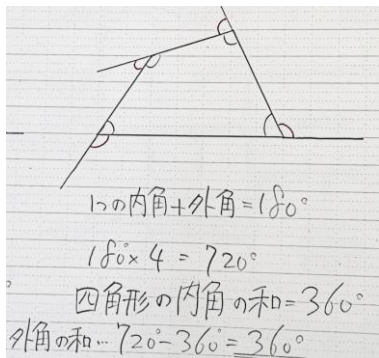 1つの内角+外角=180°
180°×4=720°
四角形の内角の和=360°
外角の和…720°-360°=360°